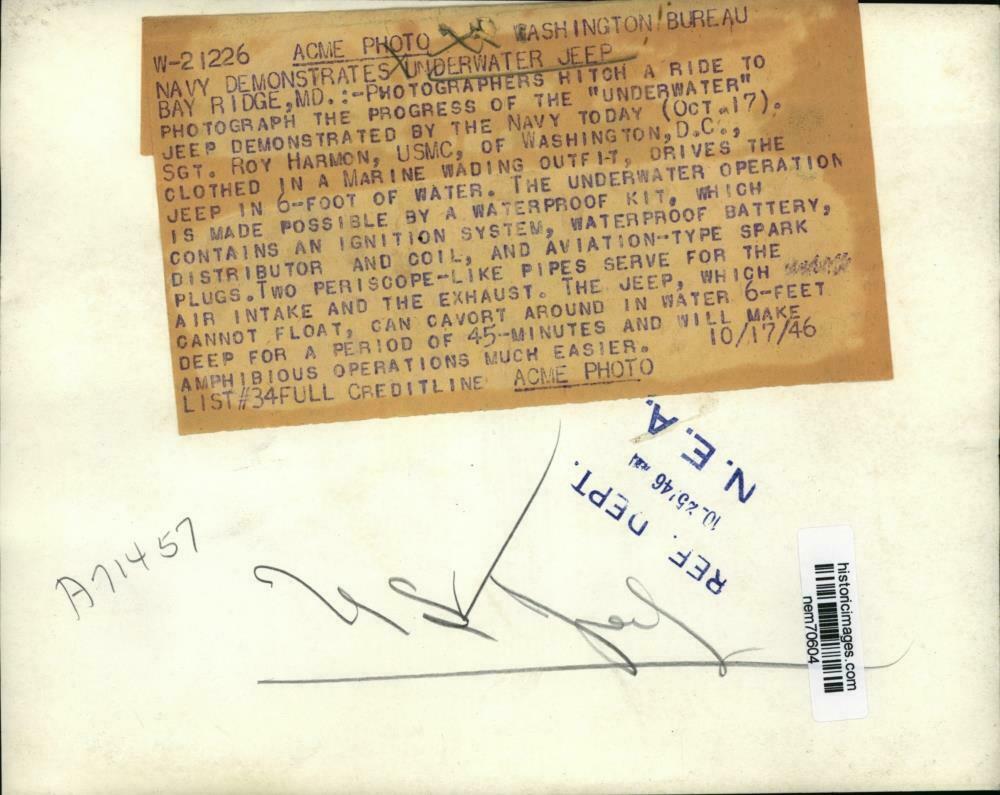 W-21226 ACME PHOTO WASHINGTON BUREAU
NAVY DEMONSTRATES UNDERWATER JEEP
BAY RIDGE, MD.:-PHOTOGRAPHERS HITCH A RIDE TO
PHOTOGRAPH THE PROGRESS OF THE "UNDERWATER"
JEEP DEMONSTRATED BY THE NAVY TODAY (OCT.17).
SGT. ROY HARMON, USMC, OF WASHINGTON, D.C.,
CLOTHED IN A MARINE WADING OUTFIT, DRIVES THE
JEEP IN 6-FOOT OF WATER. THE UNDERWATER OPERATION
IS MADE POSSIBLE BY A WATERPROOF KIT, WHICH
CONTAINS AN IGNITION SYSTEM, WATERPROOF BATTERY,
DISTRIBUTOR AND COIL, AND AVIATION-TYPE SPARK
PLUGS. TWO PERISCOPE-LIKE PIPES SERVE FOR THE
AIR INTAKE AND THE EXHAUST. THE JEEP, WHICH
CANNOT FLOAT, CAN CAVORT AROUND IN WATER 6-FEET
DEEP FOR A PERIOD OF 45-MINUTES AND WILL MAKE
AMPHIBIOUS OPERATIONS MUCH EASIER. 10/17/46
LIST#34FULL CREDITLINE ACME PHOTO
N.E.A.
10-25'46
REF. DEPT.
A71457
historicimages.com
nem70604